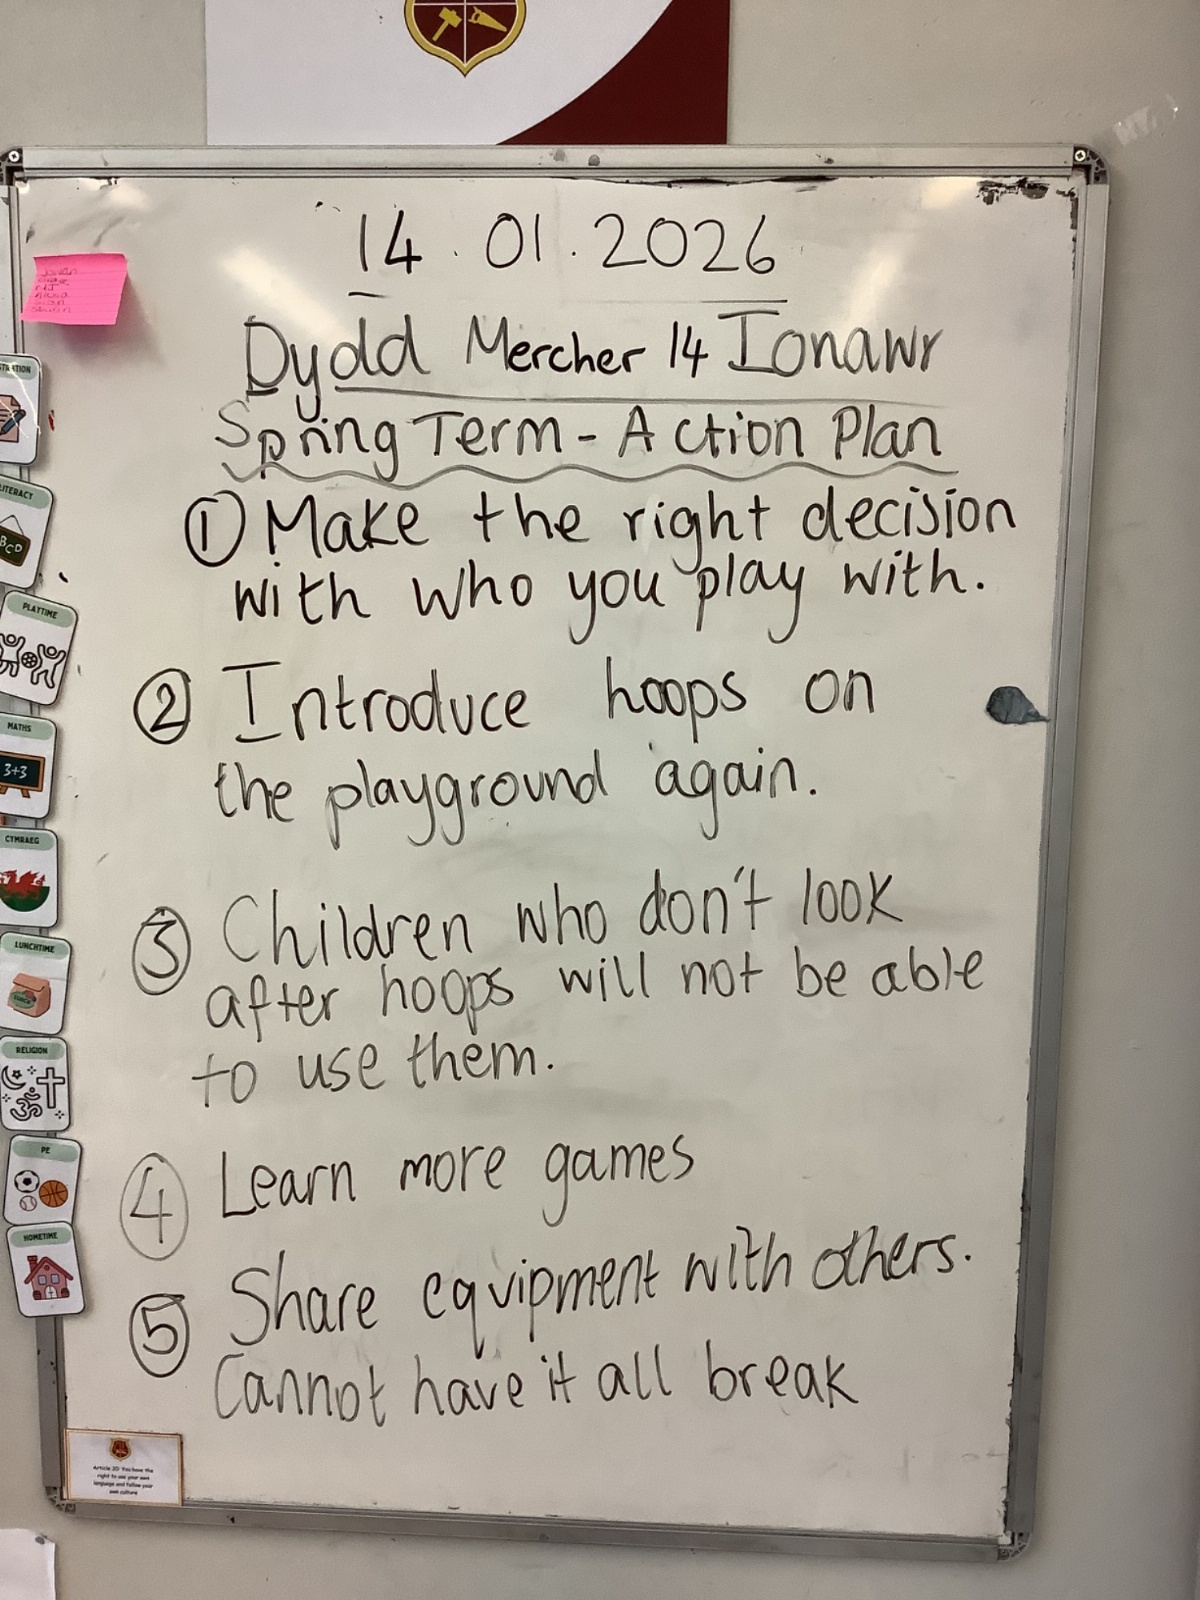 14.01.2026
Dydd Mercher 14 Ionawr
Spring Term - Action Plan
① Make the right decision
with who you play with.
② Introduce hoops on
the playground again.
③ Children who don't look
after hoops will not be able
to use them.
④ Learn more games
⑤ Share equipment with others.
Cannot have it all break
STRATION
LITERACY
BCD
PLAYTIME
MATHS
3+3
CYMRAEG
LUNCHTIME
LUNCH
RELIGION
PE
HOMETIME
Article 30: You have the
right to use your own
language and follow your
own culture